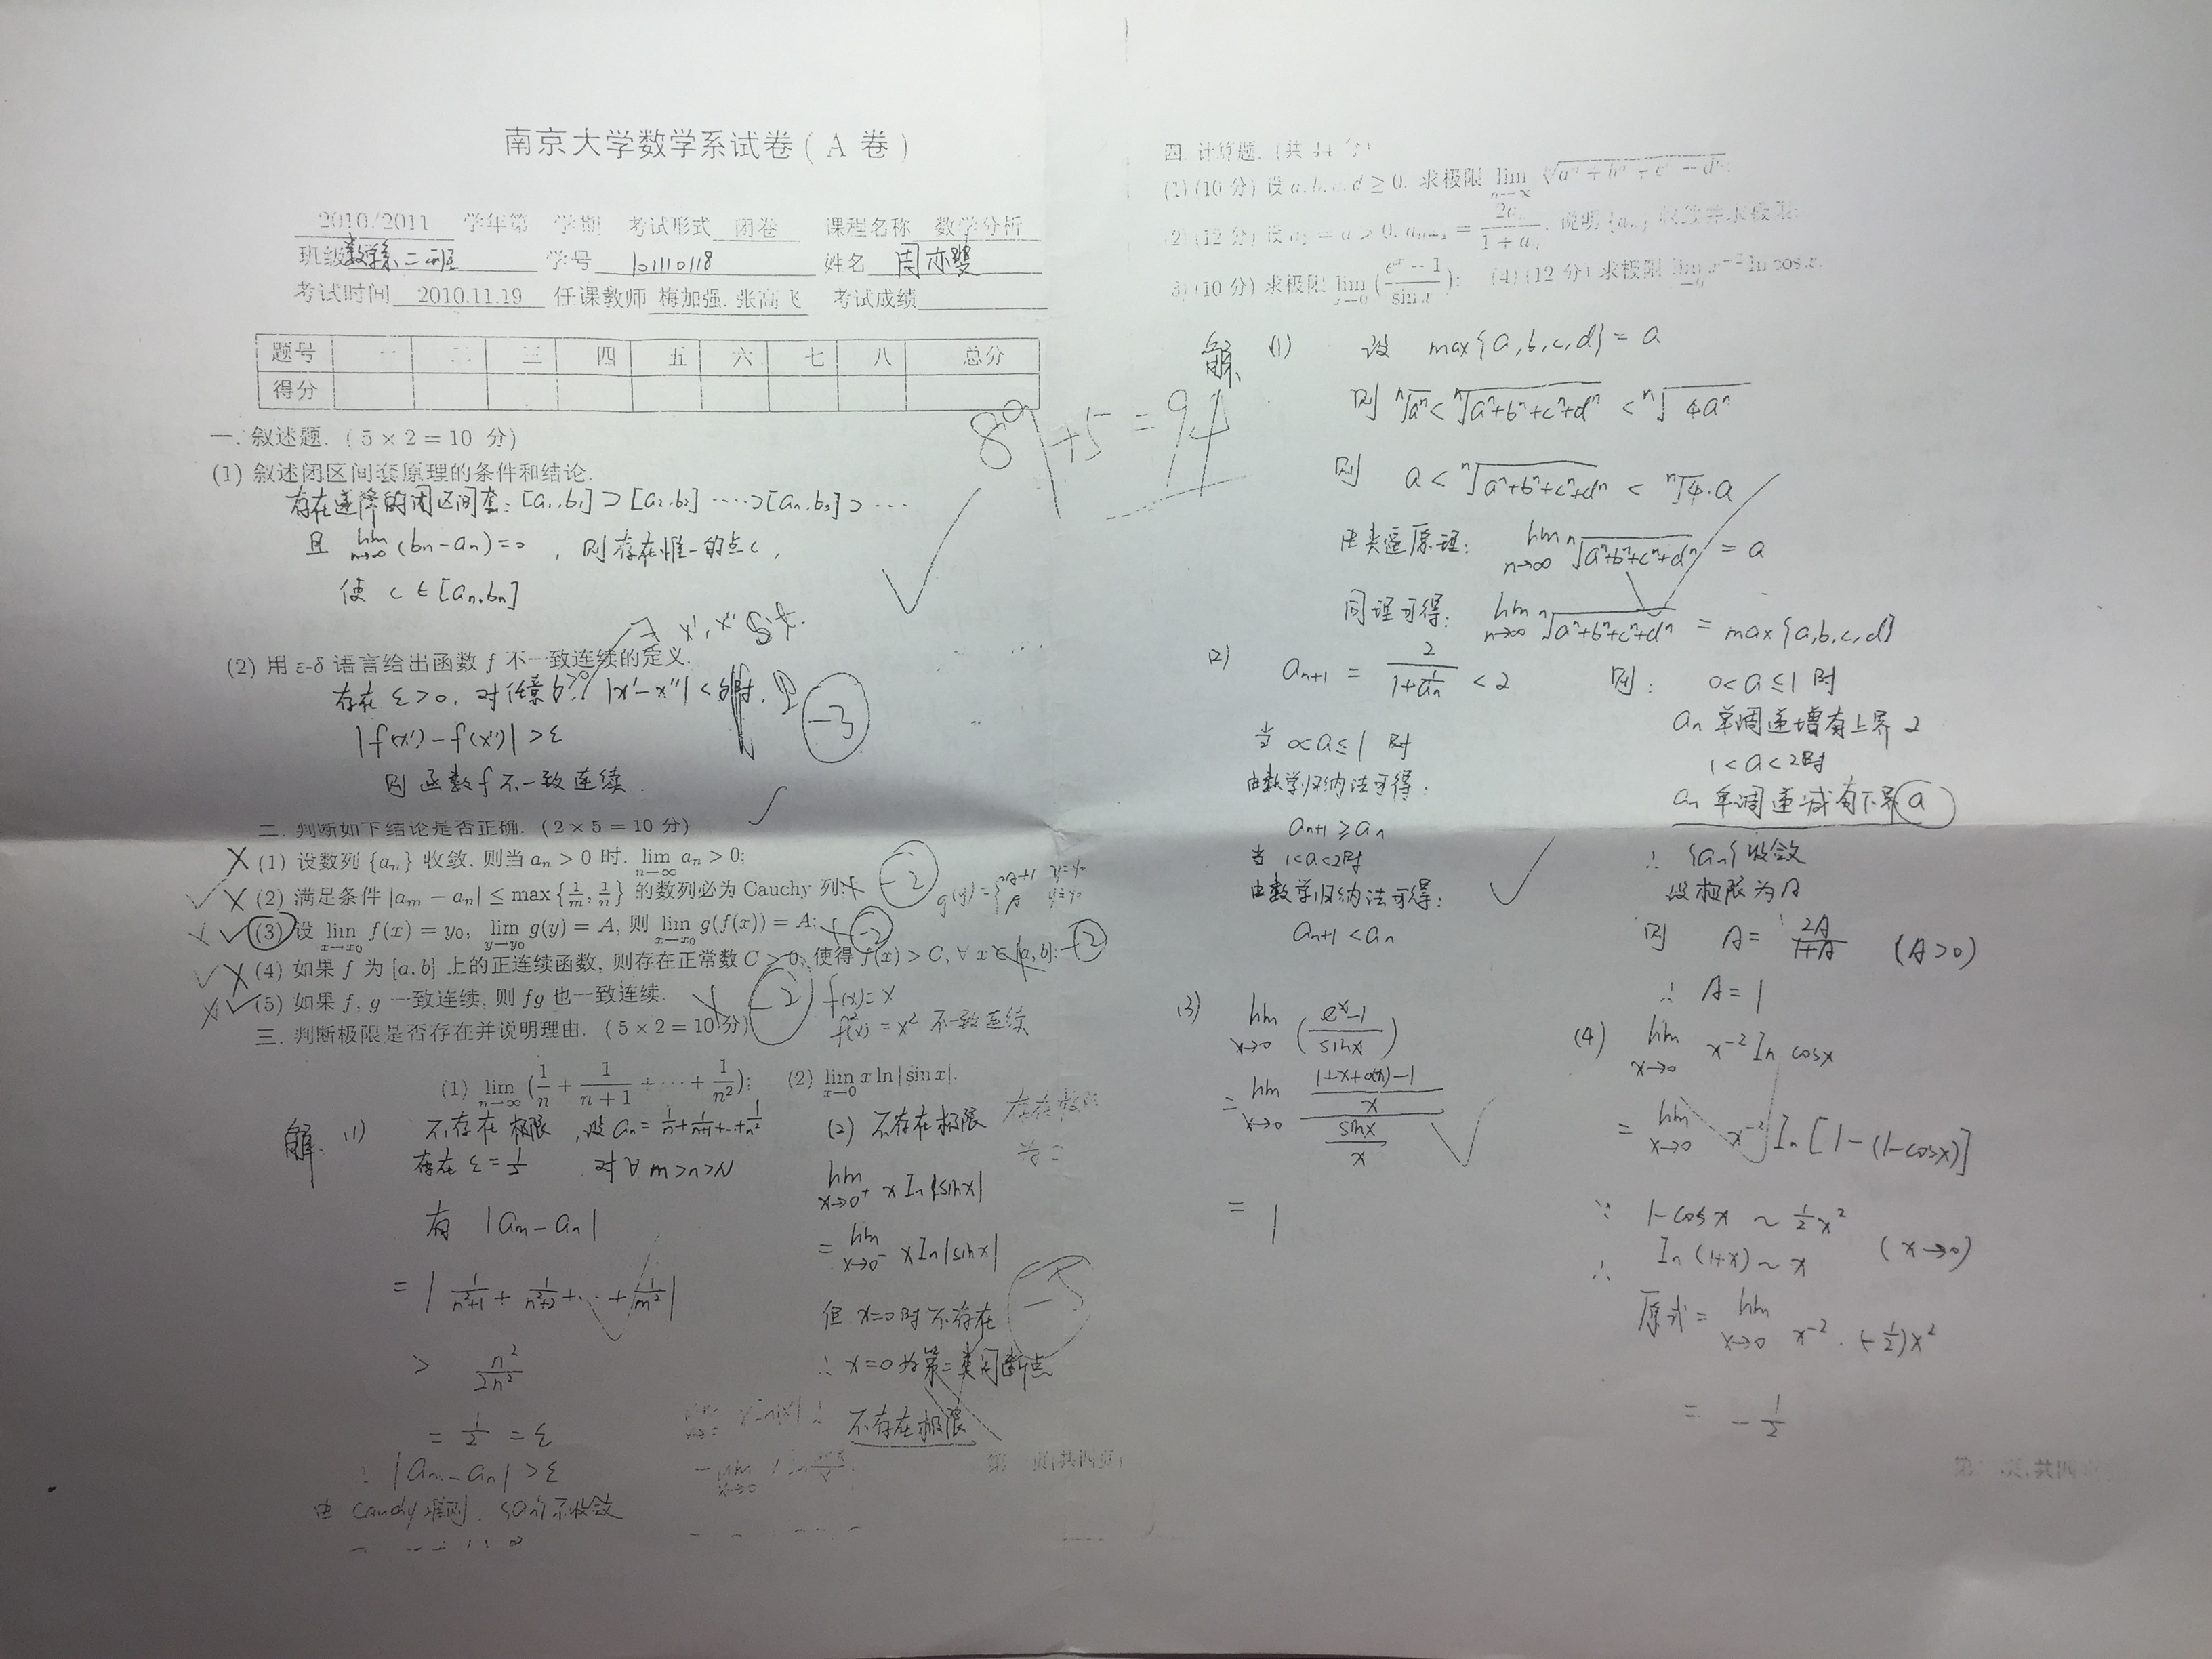 南京大学数学系试卷 ( A 卷 )
2010/2011 学年第 学期 考试形式 闭卷 课程名称 数学分析
班级 数学系二班 学号 101110118 姓名
考试时间 2010.11.19 任课教师 梅加强, 张高飞 考试成绩
题号 一 二 三 四 五 六 七 八 总分
得分
89+5=94
一. 叙述题. (5 × 2 = 10 分)
(1) 叙述闭区间套原理的条件和结论.
存在递降的闭区间套: [a1,b1] ⊃ [a2,b2] ⋯⊃[an,bn] ⊃ ⋯
且 lim n→∞ (bn-an)=0 , 则存在惟一的点C ,
使 C ∈ [an,bn]
(2) 用 ε-δ 语言给出函数 f 不一致连续的定义.
存在 ε>0, 对任意 δ>0, |x'-x''| < δ时,
|f(x')-f(x'')| > ε
-3
则函数 f 不一致连续.
二. 判断如下结论是否正确. (2 × 5 = 10 分)
X (1) 设数列 {an} 收敛, 则当 an > 0 时, lim n→∞ an > 0;
X (2) 满足条件 |am − an| ≤ max{1/m, 1/n} 的数列必为 Cauchy 列; -2
√ (3) 设 lim x→x0 f(x) = y0, lim y→y0 g(y) = A, 则 lim x→x0 g(f(x)) = A; -2
X (4) 如果 f 为 [a,b] 上的正连续函数, 则存在正常数 C > 0, 使得 f(x) > C, ∀ x ∈ [a,b]; -2
√ (5) 如果 f, g 一致连续, 则 fg 也一致连续. -2
f(x)=x
f²(x)=x² 不一致连续
三. 判断极限是否存在并说明理由. (5 × 2 = 10 分)
(1) lim n→∞ (1/n + 1/(n+1) + ⋯ + 1/n²); (2) lim x→0 x ln|sin x|.
解: (1) 不存在极限, 设 an = 1/n + 1/(n+1) + ⋯ + 1/n²
存在 ε = 1/2 , 对 ∀ m>n>N
有 |am - an|
= | 1/(n+1) + 1/(n+2) + ⋯ + 1/(m²) |
> n²/2n²
= 1/2 = ε
∴ |am - an| > ε
由 Cauchy 准则, {an}不收敛
(2) 不存在极限
lim x→0⁺ x ln|sinx|
= lim x→0⁻ x ln|sinx|
但 x=0时不存在
∴ x=0为第二类间断点
不存在极限
-5
四. 计算题. (共 44 分)
(1) (10 分) 设 a, b, c, d ≥ 0, 求极限 lim n→∞ ⁿ√(aⁿ + bⁿ + cⁿ + dⁿ);
(2) (12 分) 设 a1 = a > 0, an+1 = 2an/(1 + an), 说明 {an} 收敛并求极限;
(3) (10 分) 求极限 lim x→0 (eˣ − 1)/(sin x); (4) (12 分) 求极限 lim x→0 x⁻² ln cos x.
解: (1) 设 max{a,b,c,d} = a
则 ⁿ√aⁿ < ⁿ√(aⁿ+bⁿ+cⁿ+dⁿ) < ⁿ√(4aⁿ)
则 a < ⁿ√(aⁿ+bⁿ+cⁿ+dⁿ) < ⁿ√4·a
由夹逼原理: lim n→∞ ⁿ√(aⁿ+bⁿ+cⁿ+dⁿ) = a
同理可得: lim n→∞ ⁿ√(aⁿ+bⁿ+cⁿ+dⁿ) = max{a,b,c,d}
(2) an+1 = 2/(1+1/an) < 2
当 0<a≤1 时
由数学归纳法可得:
an+1 ≥ an
当 1<a<2时
由数学归纳法可得:
an+1 < an
则: 0<a≤1 时
an 单调递增有上界 2
1<a<2时
an 单调递减有下界 a
∴ {an}收敛
设极限为A
则 A = 2A/(1+A) (A>0)
∴ A=1
(3) lim x→0 ((eˣ-1)/sinx)
= lim x→0 ((1+x+o(x)-1)/x)/(sinx/x)
= 1
(4) lim x→0 x⁻² ln cosx
= lim x→0 x⁻² ln [1-(1-cosx)]
∵ 1-cosx ~ 1/2 x²
ln(1+x) ~ x (x→0)
∴ 原式 = lim x→0 x⁻² · (-1/2)x²
= -1/2